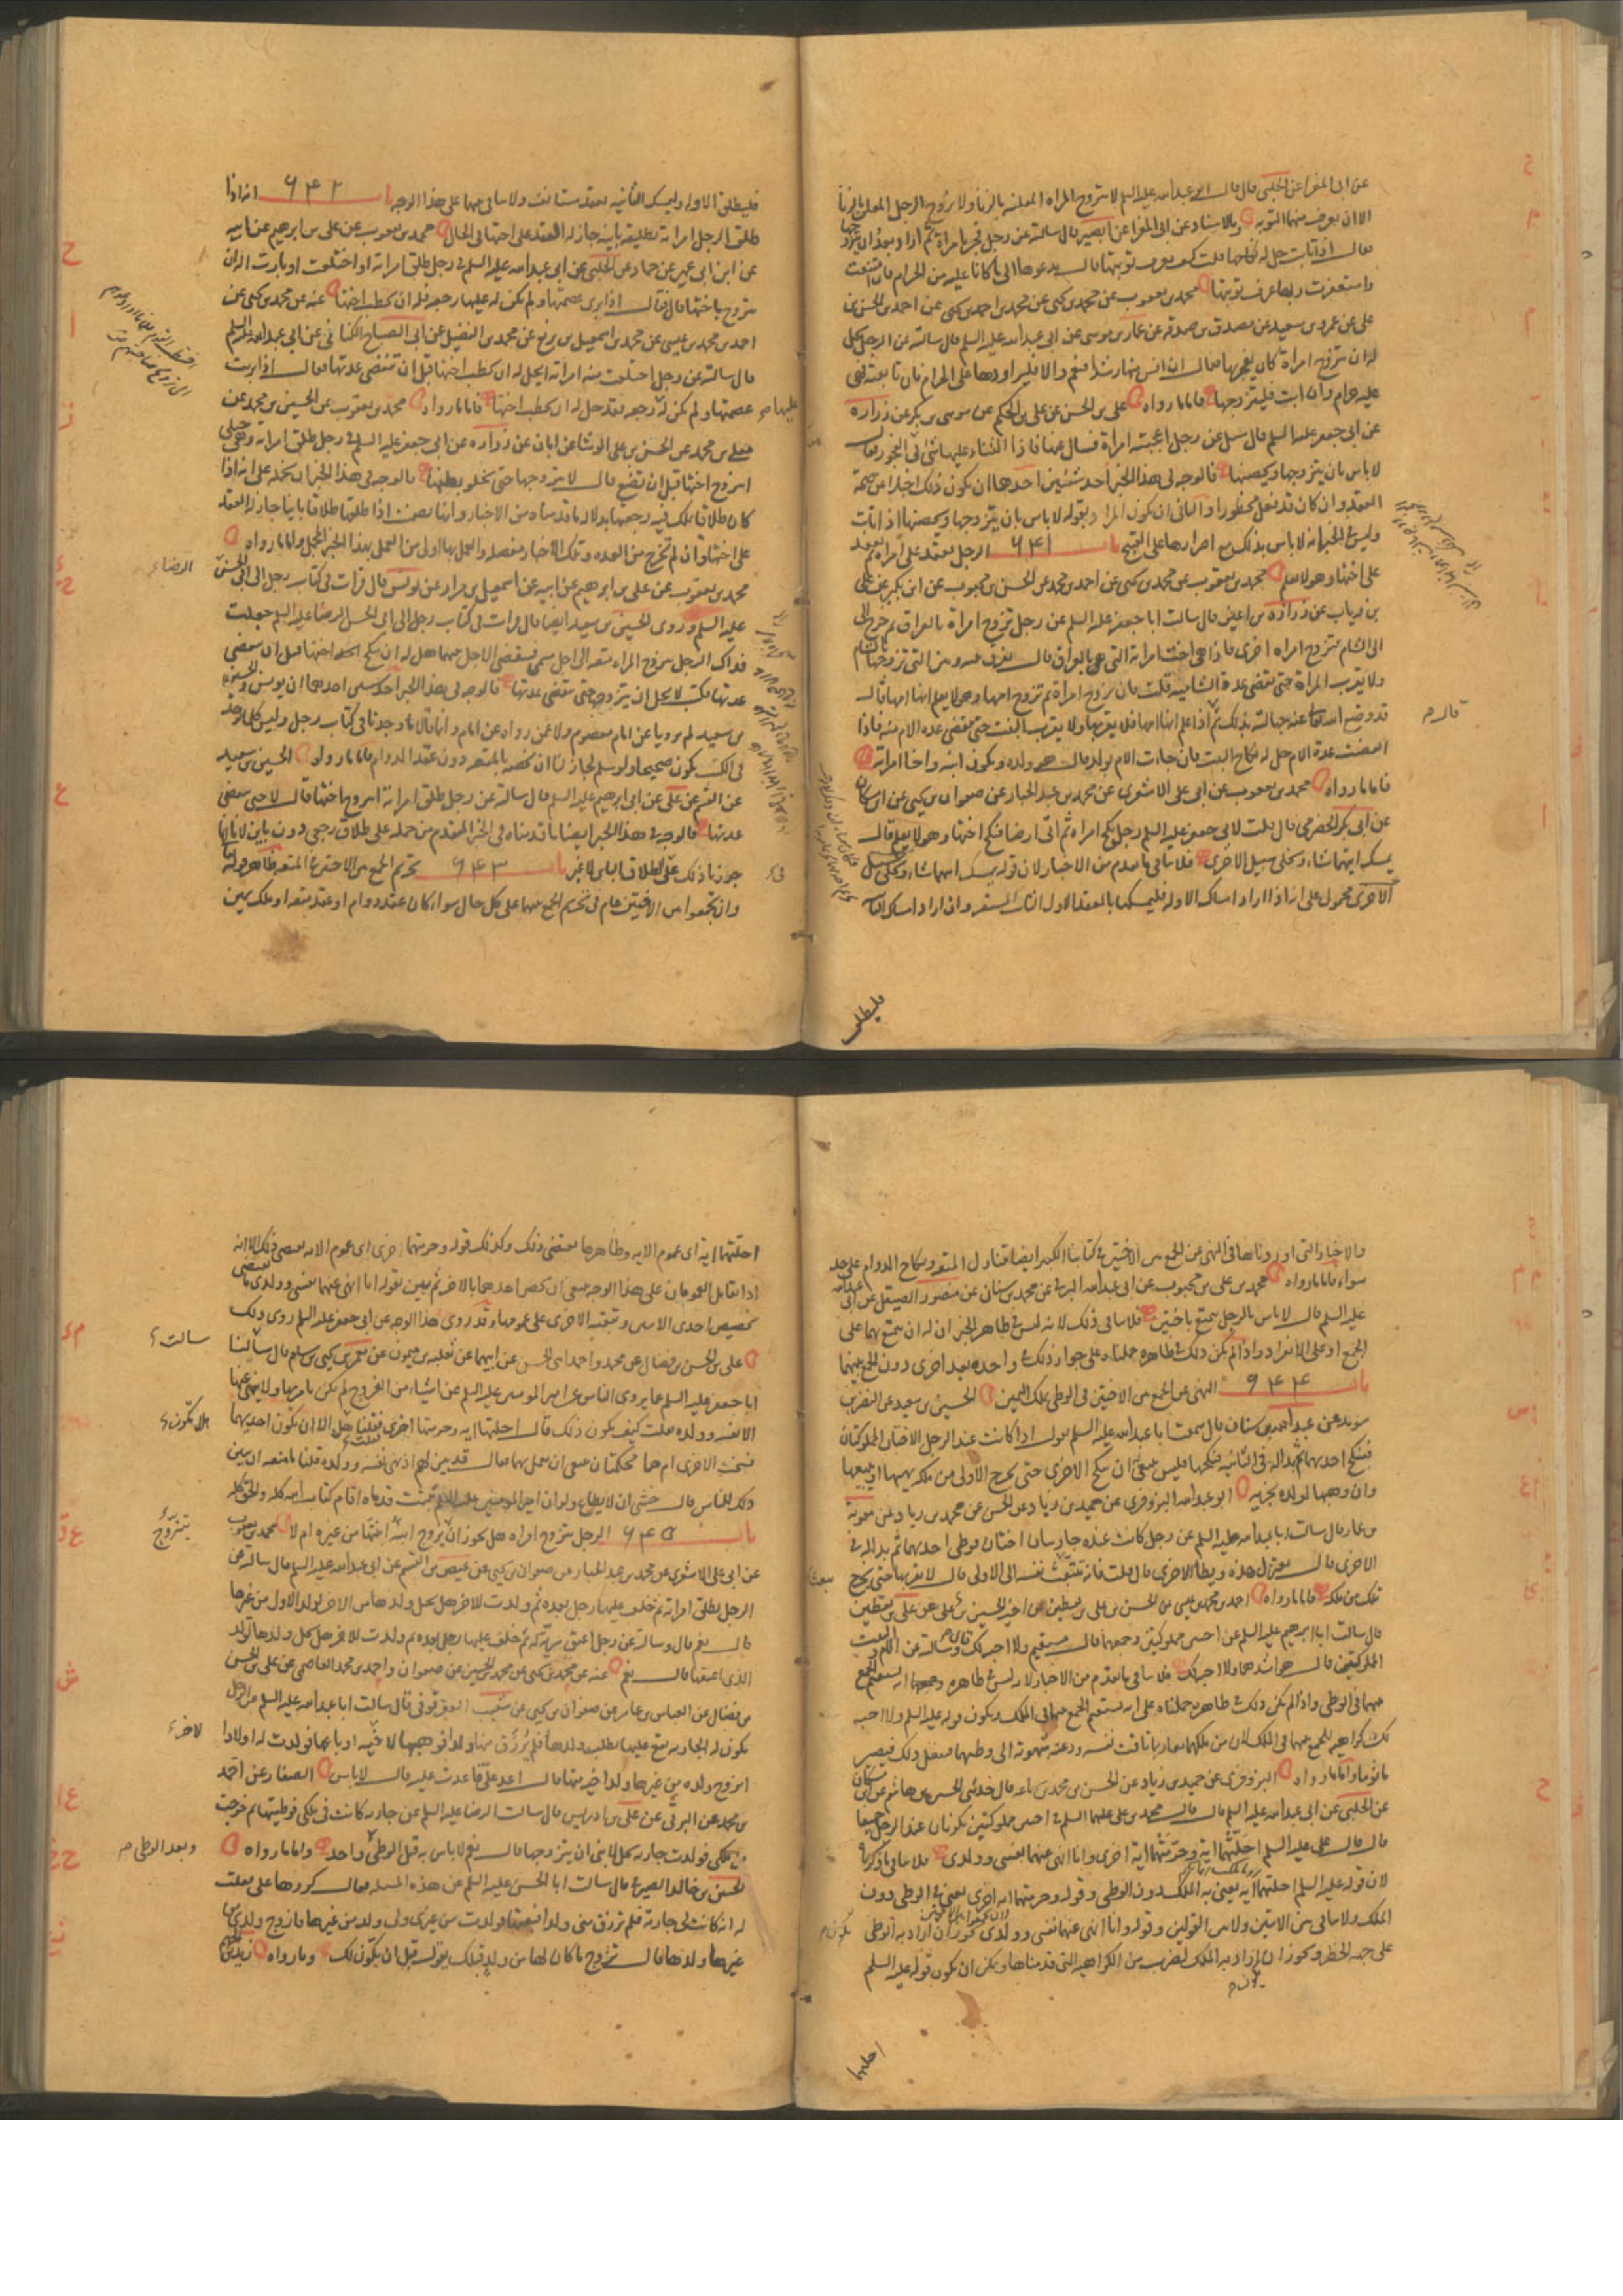 عن ابي المغرا عن الحلبي قال قال ابو عبد الله عليه السلم لا تتزوج المراة المعلنة بالزنا ولا يزوج الرجل المعلن بالزنا
الا ان يعرف منهما التوبة وبالاسناد عن ابي المغرا عن ابي بصير قال سالته عن رجل فجر بامراة ثم اراد بعد ان يتزوجها
فقال اذا تابت حل له نكاحها قلت كيف يعرف توبتها قال يدعوها الى ما كانا عليه من الحرام فان امتنعت
واستغفرت ربها عرف توبتها محمد بن يعقوب عن محمد بن يحيى عن محمد بن احمد بن يحيى عن احمد بن الحسن بن
علي عن عمرو بن سعيد عن مصدق بن صدقة عن عمار بن موسى عن ابي عبد الله عليه السلم قال سالته عن الرجل يحل
له ان يتزوج امراة كان يفجر بها فقال ان انس منها رشدا فنعم والا فليراودها على الحرام فان تابعته فهي
عليه حرام وان ابت فليتزوجها فاما ما رواه علي بن الحسن عن علي بن الحكم عن موسى بن بكر عن زرارة
عن ابي جعفر عليه السلم قال سئل عن رجل اعجبته امراة فسال عنها فاذا الثناء عليها شيء في الفجور فقال
لا باس بان يتزوجها ويحصنها فالوجه في هذا الخبر احد شيئين احدهما ان يكون ذلك اخبارا عن صحة
العقد وان كان قد فعل محظورا والثاني ان يكون المراد بقوله لا باس بان يتزوجها ويحصنها اذا تابت
وليس في الخبر انه لا باس بذلك مع اصرارها على القبيح باب ٦٤١ الرجل يعقد على امراة ثم يعقد
على اختها وهو لا يعلم محمد بن يعقوب عن محمد بن يحيى عن احمد بن محمد عن الحسن بن محبوب عن ابن بكير عن علي
بن رئاب عن زرارة بن اعين قال سالت ابا جعفر عليه السلم عن رجل تزوج امراة بالعراق ثم خرج الى
الى الشام فتزوج امراة اخرى فاذا هي اخت امراته التي هي بالعراق قال يفرق بينه وبين التي تزوجها بالشام
ولا يقرب المراة حتى تنقضي عدة الشامية قلت فان تزوج امراة ثم تزوج امها وهو لا يعلم انها امها قال
قد وضع الله تعالى عنه جهالته بذلك ثم اذا علم انها امها فلا يقربها ولا يقرب البنت حتى تنقضي عدة الام منه فاذا
انقضت عدة الام حل له نكاح البنت فان جاءت الام بولد قال هو ولده ويكون ابنه واخا امراته
فاما ما رواه محمد بن يعقوب عن ابي علي الاشعري عن محمد بن عبد الجبار عن صفوان بن يحيى عن ابن مسكان
عن ابي بكر الحضرمي قال قلت لابي جعفر عليه السلم رجل نكح امراة ثم اتى ارضا فنكح اختها وهو لا يعلم قال
يمسك ايتهما شاء ويخلي سبيل الاخرى فلا ينافي ما تقدم من الاخبار لان قوله يمسك ايتهما شاء ويخلي سبيل
الاخرى محمول على انه اذا اراد امساك الاولة فليمسكها بالعقد الاول الثابت المستقر وان اراد امساك الثانية
فليطلق
قال
فليطلق الاولة وليمسك الثانية بعقد مستانف ولا تنافي بينهما على هذا الوجه باب ٦٤٢ انه اذا
طلق الرجل امراته تطليقة باينة جاز له العقد على اختها في الحال محمد بن يعقوب عن علي بن ابرهيم عن ابيه
عن ابن ابي عمير عن حماد عن الحلبي عن ابي عبد الله عليه السلم في رجل طلق امراته او اختلعت او بارت اله ان
يتزوج باختها قال فقال اذا برى عصمتها ولم يكن له عليها رجعة فله ان يخطب اختها عنه عن محمد بن يحيى عن
احمد بن محمد بن عيسى عن محمد بن اسمعيل بن بزيع عن محمد بن الفضيل عن ابي الصباح الكناني عن ابي عبد الله عليه السلم
قال سالته عن رجل اختلعت منه امراته ايحل له ان يخطب اختها قبل ان تنقضي عدتها فقال اذا برئت
عصمتها ولم يكن له رجعة فقد حل له ان يخطب اختها فاما ما رواه محمد بن يعقوب عن الحسين بن محمد عن
معلى بن محمد عن الحسن بن علي الوشا عن ابان عن زرارة عن ابي جعفر عليه السلم في رجل طلق امراته وهي حبلى
ايتزوج اختها قبل ان تضع قال لا يتزوجها حتى يخلو بطنها فالوجه في هذا الخبر ان نحمله على انه اذا
كان طلاقا يملك فيه رجعتها بدلالة ما قدمناه من الاخبار وانها تضمنت اذا طلقها طلاقا باينا جاز له العقد
على اختها وان لم تخرج من العدة وتلك الاخبار مفصلة والعمل بها اولى من العمل بهذا الخبر المجمل واما ما رواه
محمد بن يعقوب عن علي بن ابرهيم عن ابيه عن اسمعيل بن مرار عن يونس قال قرات في كتاب رجل الى ابي الحسن
عليه السلم وروى الحسين بن سعيد ايضا قال قرات في كتاب رجل الى ابي الحسن الرضا عليه السلم جعلت
فداك الرجل يتزوج المراة متعة الى اجل مسمى فينقضي الاجل بينهما هل له ان ينكح اختها قبل ان تنقضي
عدتها فكتب لا يحل ان يتزوجها حتى تنقضي عدتها فالوجه في هذا الخبر احد شيئين احدهما ان يونس والحسين
بن سعيد لم يرويا عن امام معصوم ولا عن رواه عن امام وانما قالا وجدنا في كتاب رجل وليس كلما يوجد
في الكتب يكون صحيحا ولو سلم لجاز لنا ان نخصه بالمتعة دون عقد الدوام فاما ما رواه الحسين بن سعيد
عن القسم عن علي عن ابي ابرهيم عليه السلم قال سالته عن رجل طلق امراته ايتزوج اختها قال لا حتى تنقضي
عدتها فالوجه في هذا الخبر ايضا ما قدمناه في الخبر المتقدم من حمله على طلاق رجعي دون باين لانا انما
جوزنا ذلك في الطلاق الباين لا غير باب ٦٤٣ تحريم الجمع بين الاختين في المتعة ظاهر قوله تعالى
وان تجمعوا بين الاختين عام في تحريم الجمع بينهما على كل حال سواء كان عقد دوام او عقد متعة او ملك يمين
عليها
الرضاء
والاخبار التي اوردناها في النهي عن الجمع بين الاختين في كتابنا الكبير ايضا تتناول المتعة ونكاح الدوام على حد
سواء فاما ما رواه محمد بن علي بن محبوب عن ابي عبد الله البرقي عن محمد بن سنان عن منصور الصيقل عن ابي عبد الله
عليه السلم قال لا باس بالرجل يتمتع باختين فلا ينافي ذلك لانه ليس في ظاهر الخبر ان له ان يتمتع بهما على
الجمع او على الانفراد واذا لم يكن ذلك في ظاهره حملناه على جواز ذلك في واحدة بعد اخرى دون الجمع بينهما
باب ٦٤٤ النهي عن الجمع بين الاختين في الوطي بملك اليمين الحسين بن سعيد عن النضر بن
سويد عن عبد الله بن سنان قال سمعت ابا عبد الله عليه السلم يقول اذا كانت عند الرجل الاختان المملوكتان
فينكح احديهما ثم بدا له في الثانية فينكحها فليس ينبغي ان ينكح الاخرى حتى يخرج الاولى من ملكه يهبها او يبيعها
وان وهبها لولده يجزيه ابو عبد الله البزوفري عن حميد بن زياد عن الحسن عن محمد بن زياد عن معوية
بن عمار قال سالت ابا عبد الله عليه السلم عن رجل كانت عنده جاريتان اختان فوطى احديهما ثم بدا له في
الاخرى قال يعتزل هذه ويطا الاخرى قال قلت فانه تتبعث نفسه الى الاولى قال لا يقربها حتى يخرج
تلك من ملكه فاما ما رواه احمد بن محمد بن عيسى عن الحسن بن علي بن يقطين عن اخيه الحسين بن علي عن علي بن يقطين
قال سالت ابا ابرهيم عليه السلم عن اختين مملوكتين وجمعهما قال مستقيم ولا احبه لك قال وسالته عن الام والبنت
المملوكتين قال هو اشدهما ولا احبه لك فلا ينافي ما تقدم من الاخبار لانه ليس في ظاهره انه يستقيم الجمع
بينهما في الوطي واذا لم يكن ذلك في ظاهره حملناه على انه يستقيم الجمع بينهما في الملك ويكون قوله عليه السلم ولا احبه
لك كراهية للجمع بينهما في الملك لان من ملكهما معا ربما تاقت نفسه ودعته شهوته الى وطيهما فيفعل ذلك فيصير
ماثوما واما ما رواه البزوفري عن حميد بن زياد عن الحسن بن محمد بن سماعة قال حدثني الحسين بن هاشم عن ابن مسكان
عن الحلبي عن ابي عبد الله عليه السلم قال قال محمد بن علي عليهما السلم في اختين مملوكتين يكونان عند الرجل جميعا
قال قال علي عليه السلم احلتهما اية وحرمتهما اية اخرى وانا انهى عنهما نفسي وولدي فلا ينافي ما ذكرناه
لان قوله عليه السلم احلتهما اية يعني به الملك دون الوطي وقوله وحرمتهما اية اخرى يعني في الوطي دون
الملك ولا تنافي بين الايتين ولا بين القولين وقوله وانا انهى عنهما نفسي وولدي يجوز ان اراد به الوطي
على جهة الحظر ويجوز ان اراد به الملك لضرب من الكراهية التي قدمناها ويمكن ان يكون قوله عليه السلم
يكون
احلتهما
احلتهما اية اي عموم الاية وظاهرها يقتضي ذلك وكذلك قوله وحرمتهما اخرى اي عموم الاية يقتضي ذلك الا انه
اذا تقابل العمومان على هذا الوجه ينبغي ان يخص احدهما بالاخر ثم بين بقوله انا انهى عنهما نفسي وولدي ما يقتضي
تخصيص احدى الايتين وتبقية الاخرى على عمومها وقد روي هذا الوجه عن ابي جعفر عليه السلم روى ذلك
علي بن الحسن بن فضال عن محمد واحمد ابني الحسن عن ابيهما عن ثعلبة بن ميمون عن معمر بن يحيى بن سالم قال سالنا
ابا جعفر عليه السلم عما يروي الناس عن امير المومنين عليه السلم عن اشياء من الفروج لم يكن يامر بها ولا ينهى عنها
الا نفسه وولده فقلت كيف يكون ذلك قال احلتها اية وحرمتها اخرى فقلنا هل الا ان تكون احديهما
نسخت الاخرى ام هما محكمتان ينبغي ان يعمل بهما فقال قد بين لهم اذ نهى نفسه وولده قلنا ما منعه ان يبين
ذلك للناس قال خشي ان لا يطاع ولو ان امير المومنين ثبتت قدماه اقام كتاب الله كله والحق كله
باب ٦٤٥ الرجل يتزوج امراة هل يجوز ان يزوج ابنه ابنتها من غيره ام لا محمد بن يعقوب
عن ابي علي الاشعري عن محمد بن عبد الجبار عن صفوان بن يحيى عن عيص بن القسم عن ابي عبد الله عليه السلم قال سالته عن
الرجل يطلق امراته ثم خلف عليها رجل بعده ثم ولدت للاخر هل يحل ولدها من الاخر لولد الاول من غيرها
قال نعم قال وسالته عن رجل اعتق سرية له ثم خلف عليها رجل بعده ثم ولدت للاخر هل يحل ولدها لولد
الذي اعتقها قال نعم عنه عن محمد بن يحيى عن محمد بن الحسين عن صفوان واحمد بن محمد العاصمي عن علي بن الحسن
بن فضال عن العباس بن عامر عن صفوان بن يحيى عن شعيب العقرقوفي قال سالت ابا عبد الله عليه السلم عن الرجل
يكون له الجارية يقع عليها يطلب ولدها فلم يرزق منها ولدا فوهبها لاخيه او باعها فولدت له اولادا
ايزوج ولده من غيرها ولد اخيه منها قال اعد علي فاعدت عليه قال لا باس الصفار عن احمد
بن محمد عن البرقي عن علي بن ادريس قال سالت الرضا عليه السلم عن جارية كانت في ملكي فوطيتها ثم خرجت
من ملكي فولدت جارية يحل لابني ان يتزوجها قال نعم لا باس به قبل الوطي واحد واما ما رواه
الحسن بن خالد الصيرفي قال سالت ابا الحسن عليه السلم عن هذه المسئلة فقال كررها علي قلت
له انه كانت لي جارية فلم ترزق مني ولدا فبعتها فولدت من غيري ولي ولد من غيرها فازوج ولدي من
غيرها ولدها قال تزوج ما كان لها من ولد قبلك يقول قبل ان يكون لك وما رواه زيد بن
سالت
يتزوج
لاخر
وبعد الوطي